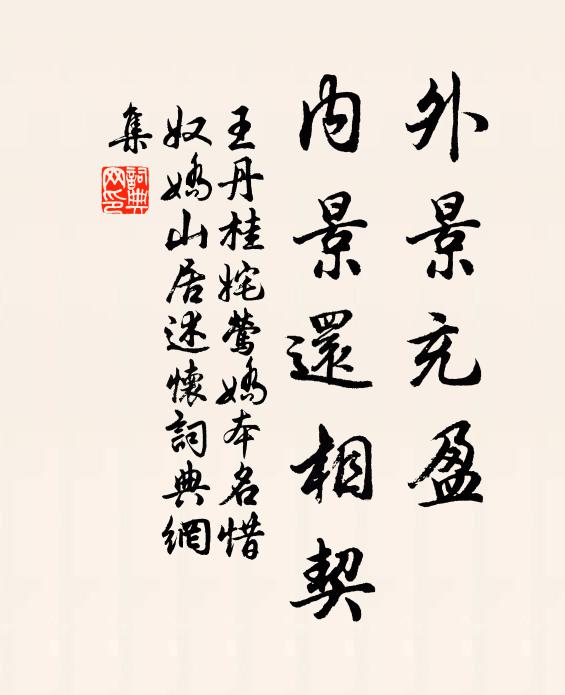 外景充盈
內景還相契
王丹桂姹鶯嬌本名惜
奴嬌山居述懷詞典網
集
詞典
网印